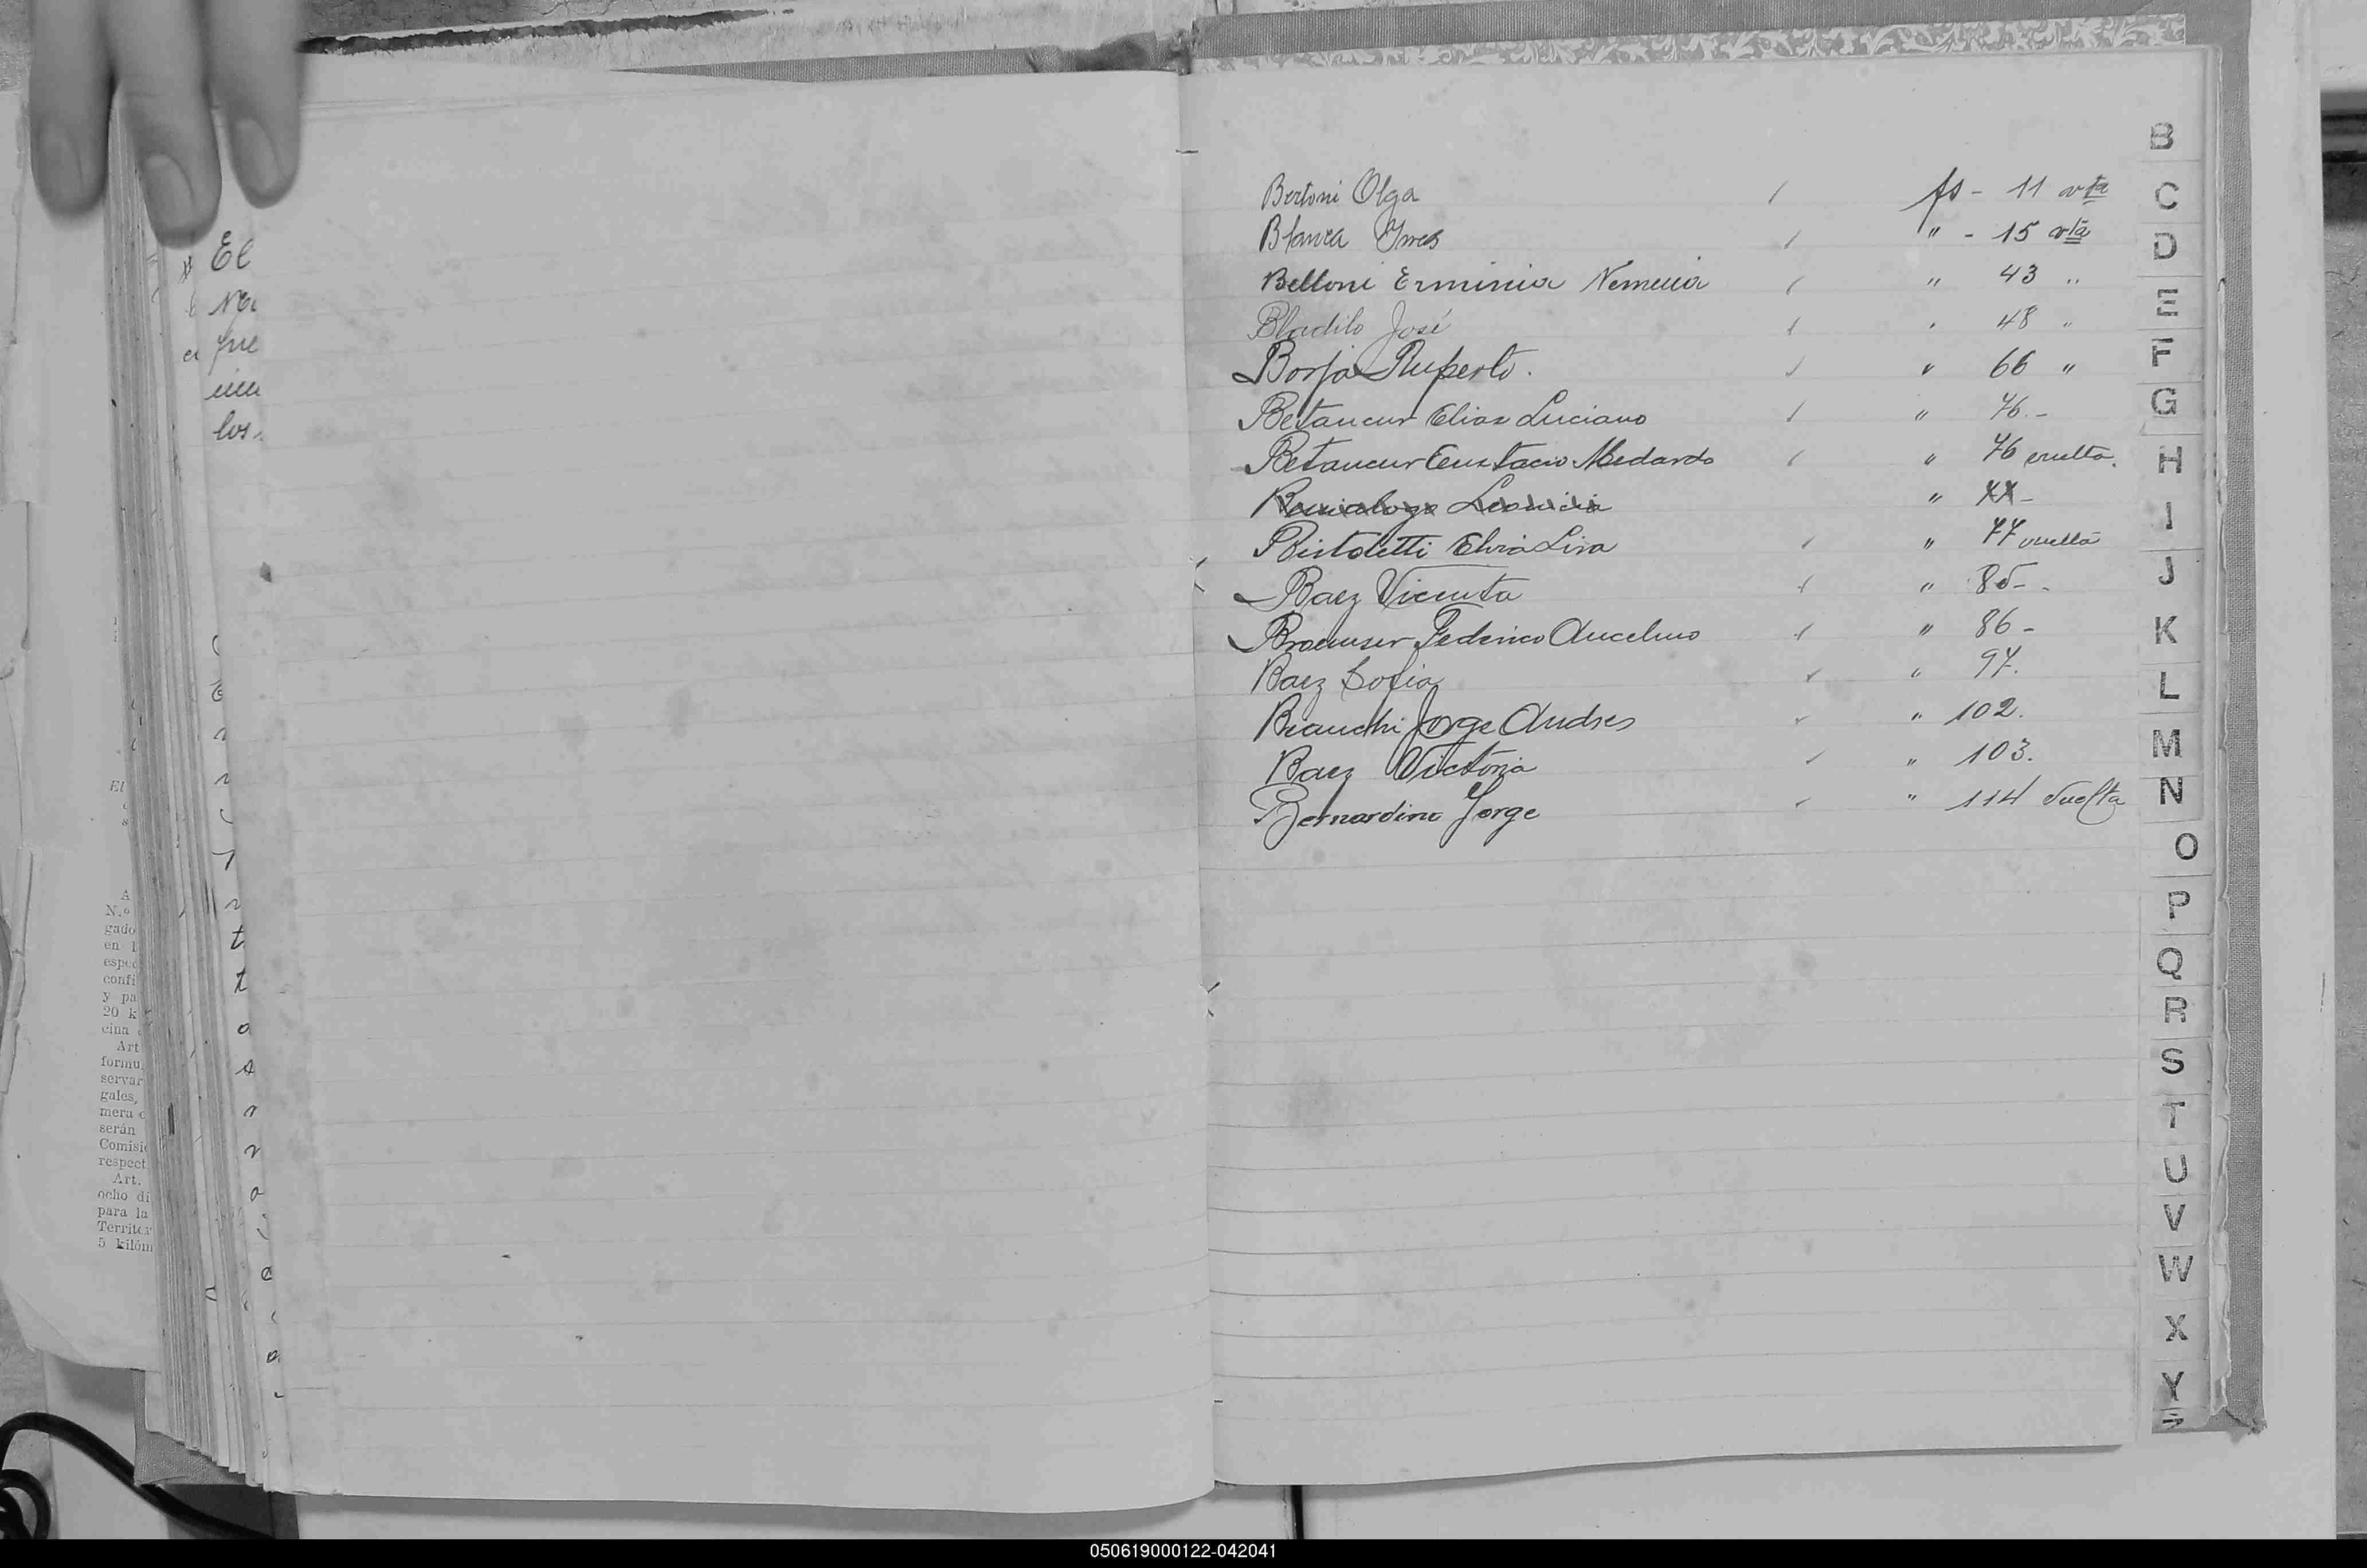 El
que
los
El
N.º
gado
en l
espec
confi
y pa
20 k
cina
Art
formu
servar
gales,
mera c
serán
Comisi
respect
Art.
ocho di
para la
Territor
5 kilóm
B
C
D
E
F
G
H
I
J
K
L
M
N
O
P
Q
R
S
T
U
V
W
X
Y
Z
Bertoni Olga / fs - 11 vta
Blanca Ynes / " - 15 vta
Belloni Erminia Nemecia / " 43 "
Bladilo José / " 48 "
Borja Ruperto. / " 66 "
Betancur Elias Luciano / " 76 -
Betancur Eustacio Medardo / " 76 vuelta.
" XX -
Bistoletti Elvia Lira / " 77 vuelta
Baez Vicenta / " 85 -
Braeunser Federico Ancelmo / " 86 -
Baez Sofia / " 97.
Bianchi Jorge Andres / " 102.
Baez Victoria / " 103.
Bernardino Jorge / " 114 vuelta
050619000122-042041